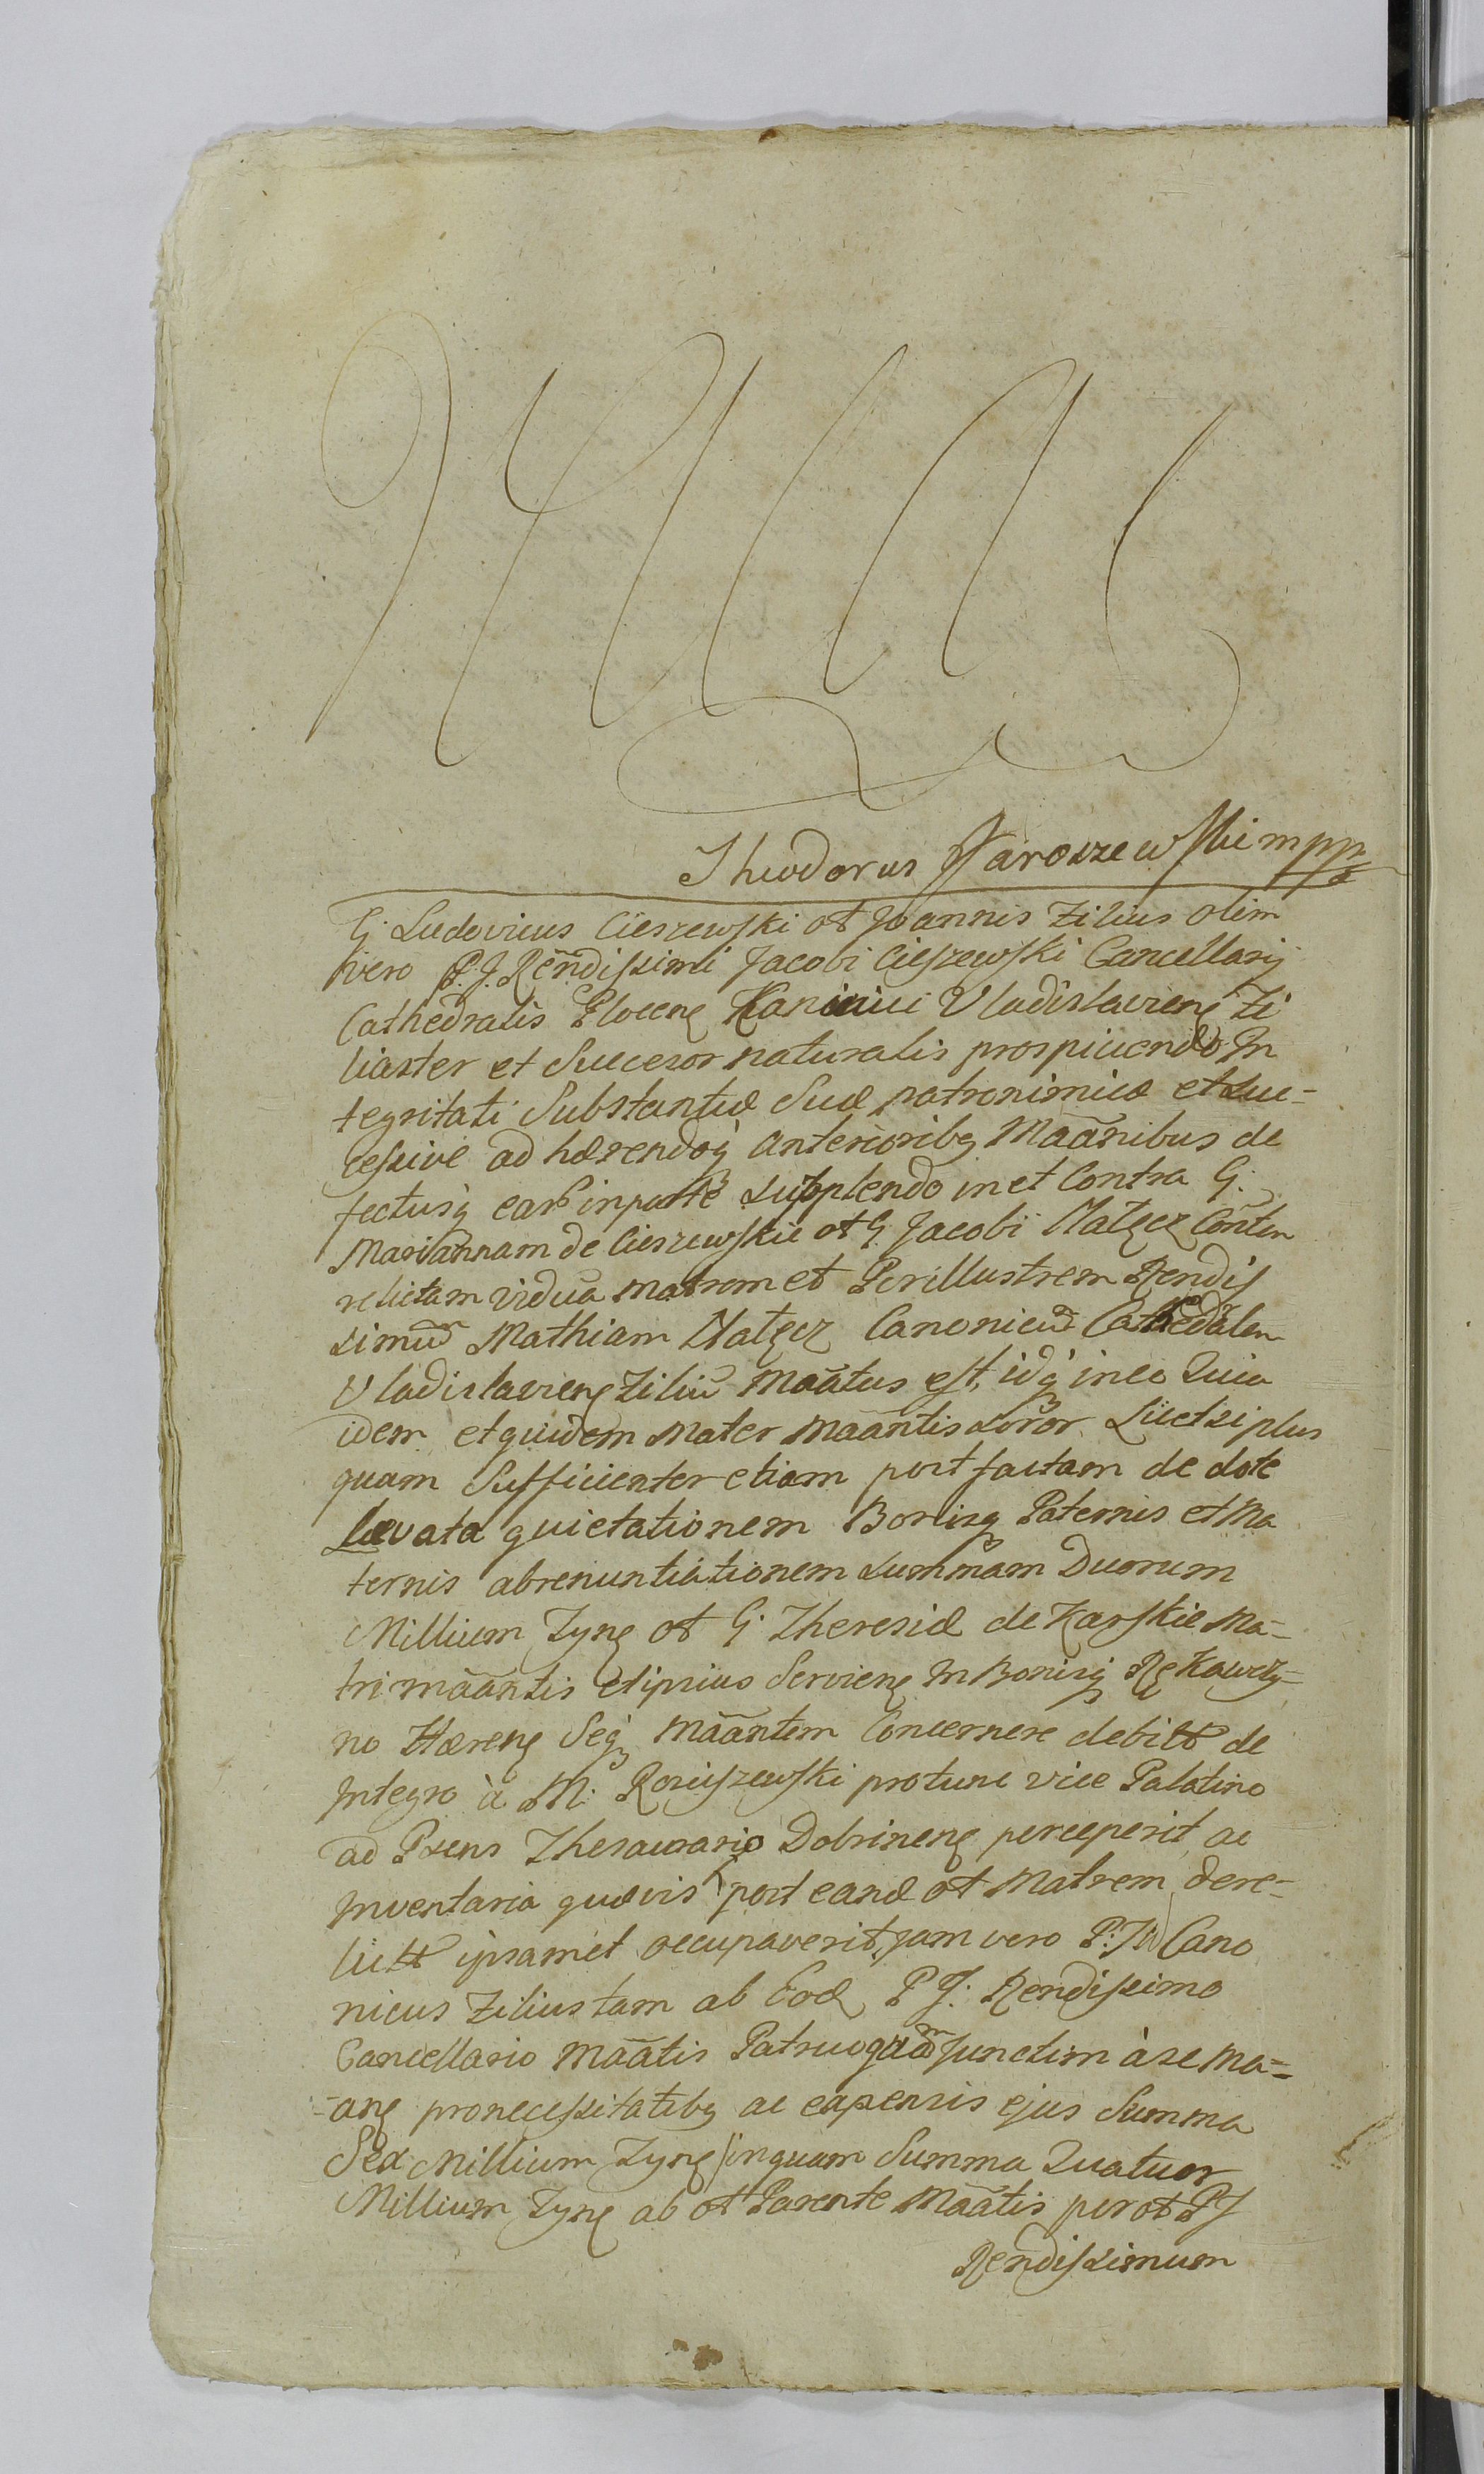 Theodorus Jaroszewski mpp
G. Ludovicus Cieszewski ot Joannis Filius olim
vero P. J. Rendissimi Jacobi Cieszewski Cancellarij
Cathedralis Plocens Kanonici Vladislaviens Fi
liaster et Succesor naturalis prospiciendo In
tegritati Substantiæ Suæ patronimicæ et suc=
cessive ad hærendoq anterioribq Maãnibus de
fectusq earũ in parte supplendo in et Contra G.
Mariannam de Cieszewskie ot G. Jacobi Małęcz Conten
relictam viduã matrem et Perillustrem Rendis
simũ Mathiam Małęcz Canonicũ Cathedralen
Vladislaviens Filiũ Maãtus est, idq in eo Quia
idem et quidem Mater Maãntis Soror Licet si plus
quam Sufficienter etiam post factam de dote
levata quietationem Bonisq Paternis et Ma
ternis abrenuntiationem summam Duorum
Millium Fynę ot G. Theresiæ de Karskie Ma=
tri maãntis et ipsius Serviens In Bonisq Rękawczy=
no Hæreng Seq Maãntem Concernere debitt de
Integro à M. Rościszewski protunc vice Palatino
ad Psens Thesaurario Dobrinens perceperit, ac
Inventaria quævis post eandæ ot Matrem dere=
lictt ipsamet occupaverit, jam vero P: J Cano
nicus Filius tam ab Eod P J. Rendissimo
Cancellario Maãtis Patruo quam junctim à se Ma=
=ans pro necessitatibq ac expensis ejus Summa
Sex Millium Fynę /in quam Summa Quatuor
Millium Fynę ab ot Parente Maãtis per ot P J
Rendissimum